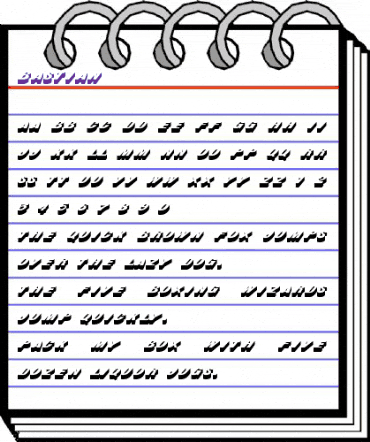 BASTIAN
AA BB CC DD EE FF GG HH II
JJ KK LL MM NN OO PP QQ RR
SS TT UU VV WW XX YY ZZ 1 2
3 4 5 6 7 8 9 0
THE QUICK BROWN FOX JUMPS
OVER THE LAZY DOG.
THE FIVE BOXING WIZARDS
JUMP QUICKLY.
PACK MY BOX WITH FIVE
DOZEN LIQUOR JUGS.